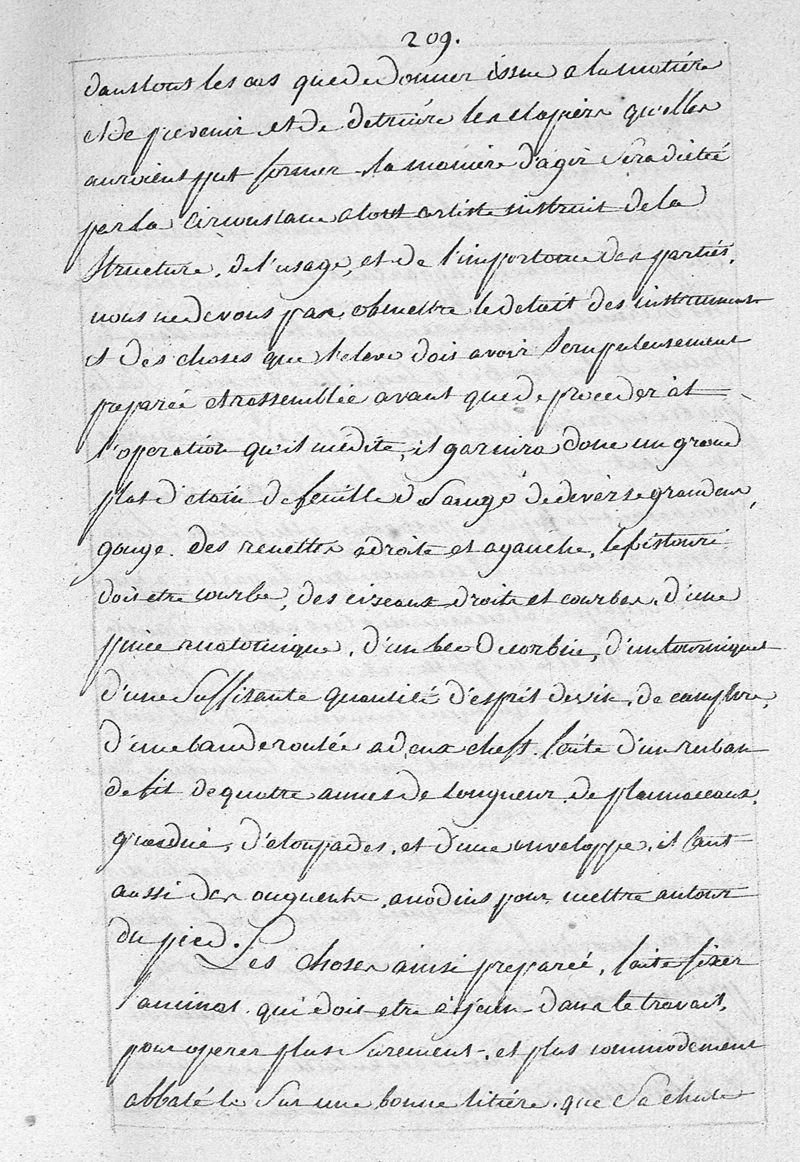 209.
dans tous les cas que de donner issue a la matiére
et de prevenir et de detruire les clapiers qu'elles
auroient put former la maniere d'agir sera dictée
par la circonstance a tout artiste instruit de la
structure, de l'usage, et de l'importance des parties,
nous ne devons pas obmettre le detail des instruments
et des choses que l'eleve dois avoir scrupuleusement
preparée et rassemblée avant que de proceder at
l'operation qu'il medite, il garnira donc un grand
plat d'etain de feuille d Sauge de deverse grandeur,
gouge. des renettes adroite et agauche, le bistouri
doit etre courbe, des ciseaux droits et courbes, d'une
pince anatomique, d'un bec d corbin, d'un tourniquet
d'une suffisante quantité d'esprit de vin, de camphre,
d'une bande roulée a deux cheft. faite d'un ruban
de fil de quatre aunes de longueur. de plumaceaux,
d'etoupades, et d'une enveloppe, il faut
aussi des onguents, anodins pour mettre autour
du pied. Les choses ainsi preparée, faite fixer
l'animal. qui dois etre a jeun dans le travail,
pour operer plus surement, et plus commodement
abbaté le sur une bonne litiére. que sa chute